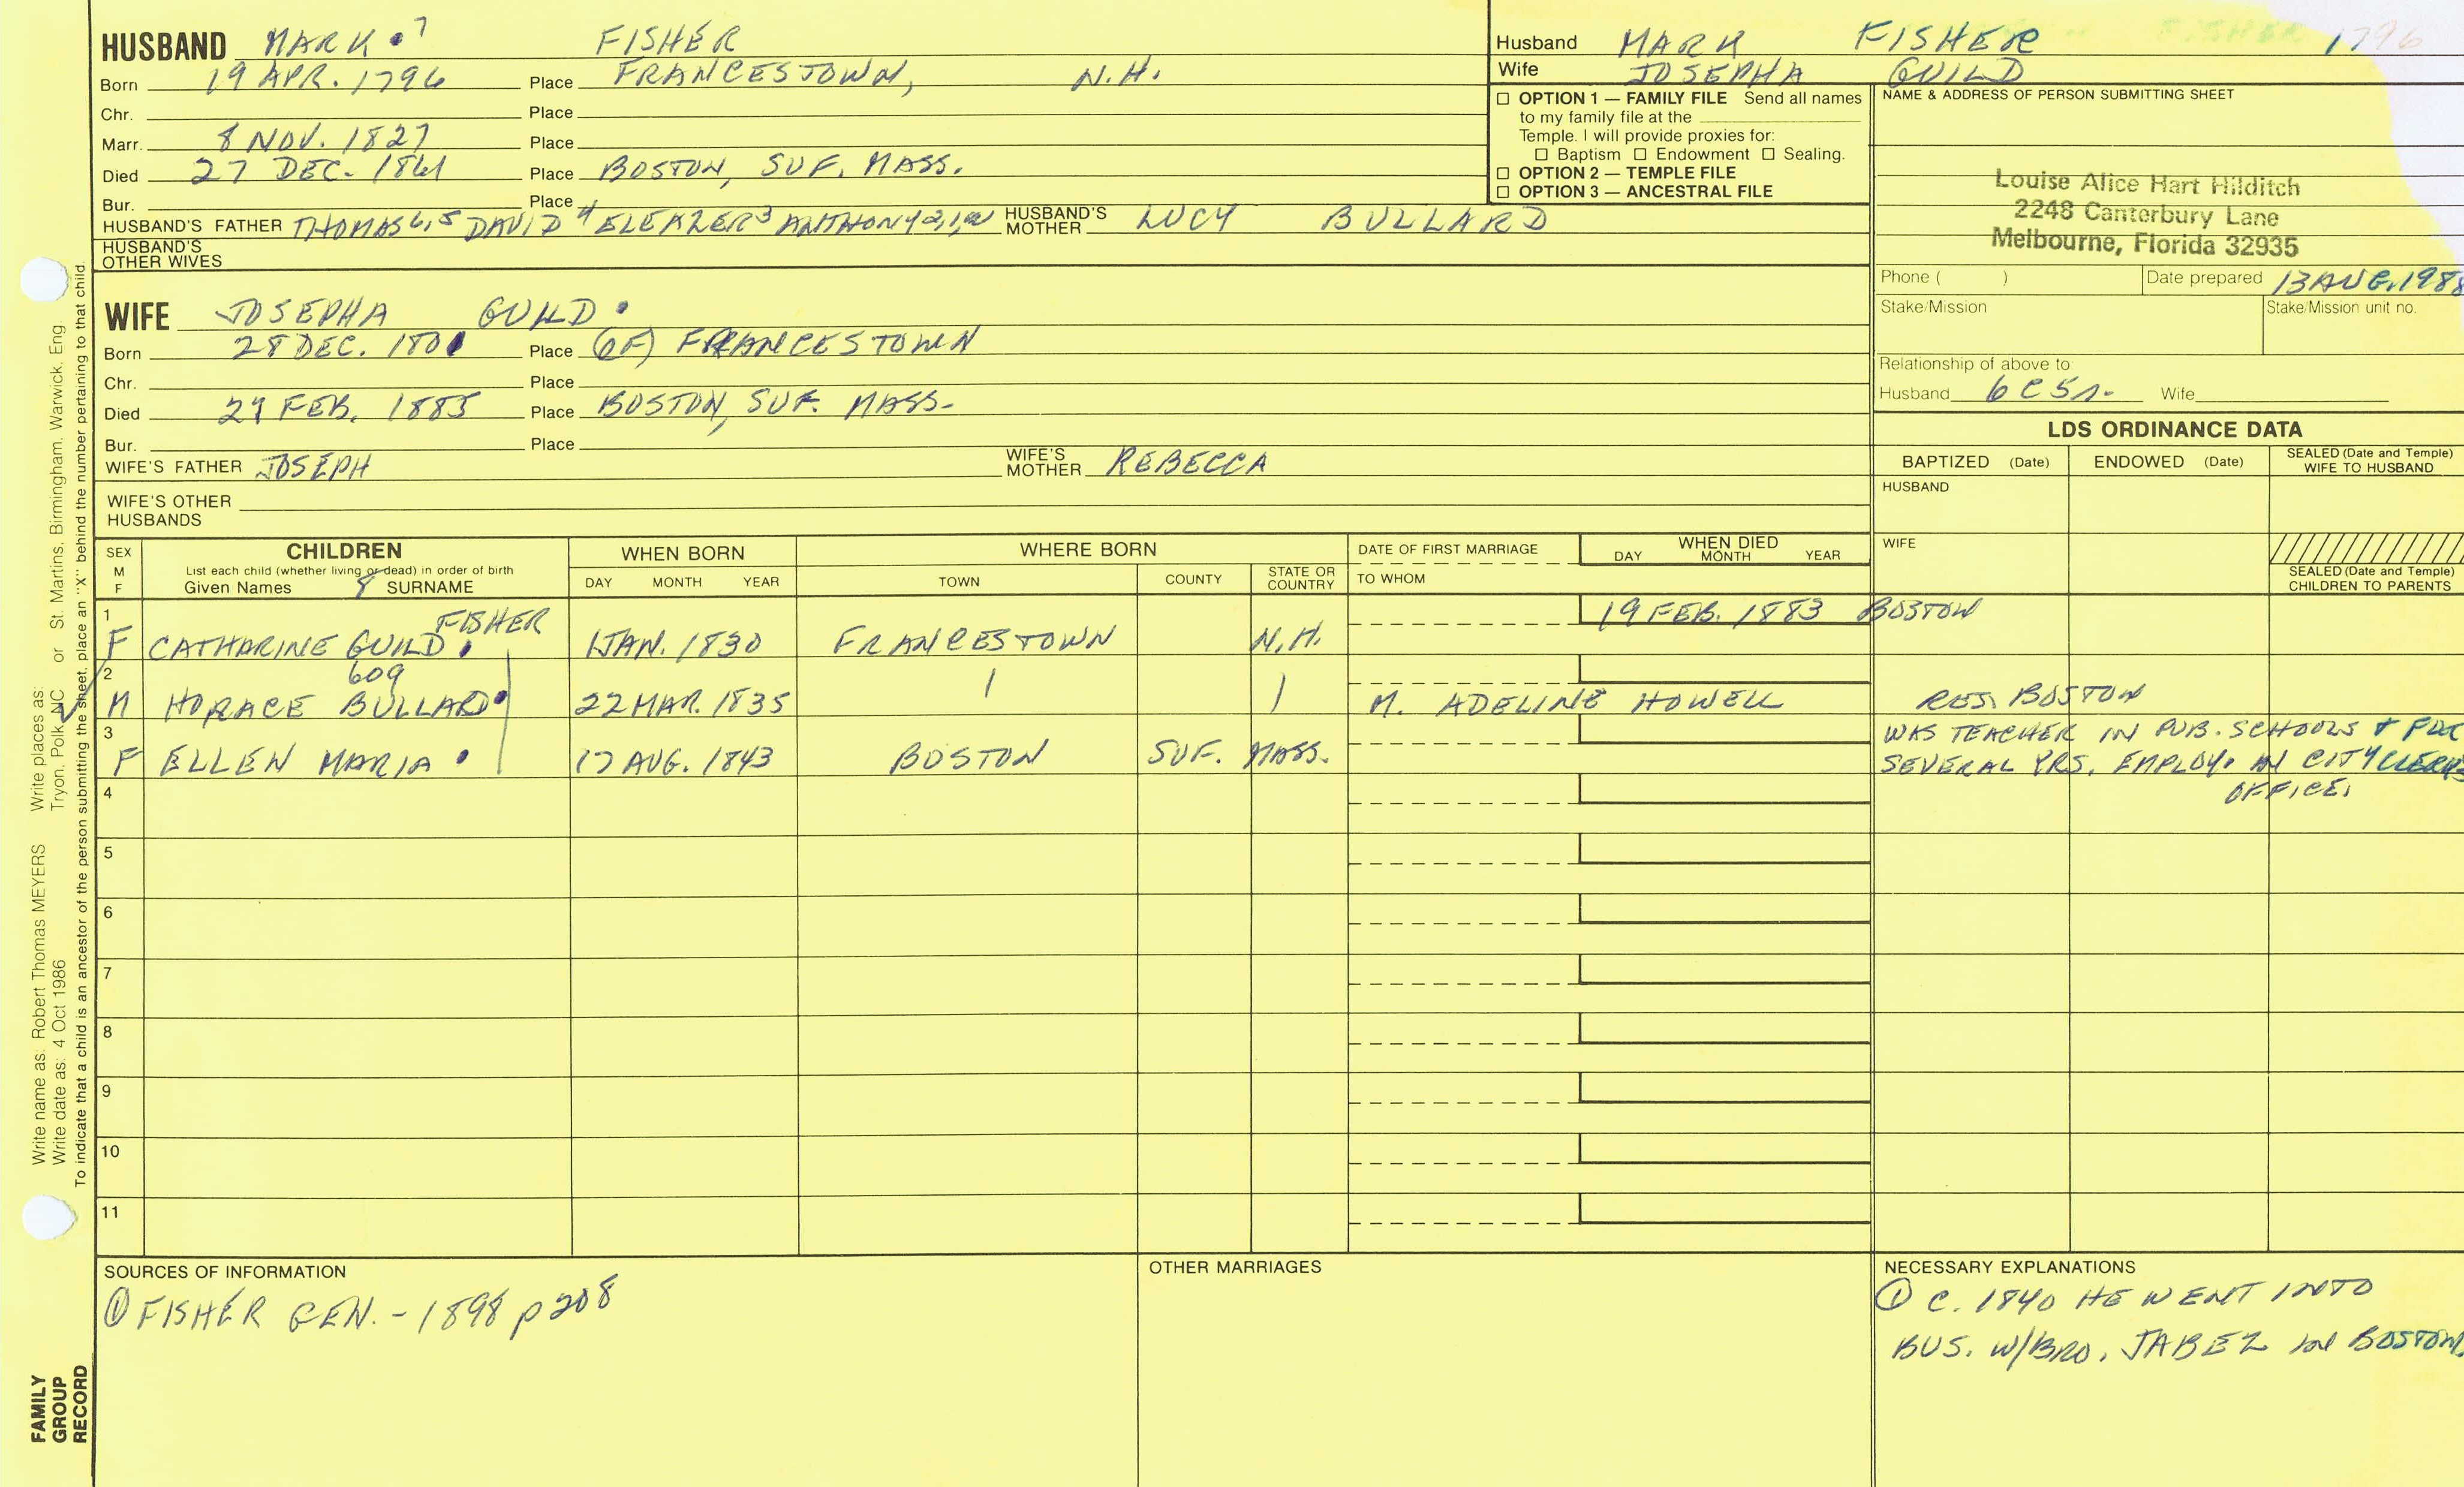 HUSBAND MARK 7 FISHER
Born 19 APR. 1796 Place FRANCESTOWN, N.H.
Chr. Place
Marr. 8 NOV. 1827 Place
Died 27 DEC. 1861 Place BOSTON, SUF. MASS.
Bur. Place
HUSBAND'S FATHER THOMAS 6,5 DAVID 4 ELEAZER 3 ANTHONY 2,1 HUSBAND'S MOTHER LUCY BULLARD
HUSBAND'S OTHER WIVES
Husband MARK FISHER 1796
Wife JOSEPHA GUILD
☐ OPTION 1 — FAMILY FILE Send all names
to my family file at the
Temple. I will provide proxies for:
☐ Baptism ☐ Endowment ☐ Sealing.
☐ OPTION 2 — TEMPLE FILE
☐ OPTION 3 — ANCESTRAL FILE
NAME & ADDRESS OF PERSON SUBMITTING SHEET
Louise Alice Hart Hilditch
2248 Canterbury Lane
Melbourne, Florida 32935
Phone ( ) Date prepared 13 AUG. 1988
Stake/Mission Stake/Mission unit no.
Relationship of above to:
Husband 6C5r. Wife
WIFE JOSEPHA GUILD
Born 28 DEC. 1801 Place (OF) FRANCESTOWN
Chr. Place
Died 29 FEB. 1885 Place BOSTON, SUF. MASS.
Bur. Place
WIFE'S FATHER JOSEPH WIFE'S MOTHER REBECCA
WIFE'S OTHER HUSBANDS
LDS ORDINANCE DATA
BAPTIZED (Date) ENDOWED (Date) SEALED (Date and Temple) WIFE TO HUSBAND
HUSBAND
WIFE
SEALED (Date and Temple) CHILDREN TO PARENTS
SEX M F
CHILDREN
List each child (whether living or dead) in order of birth
Given Names 8 SURNAME
WHEN BORN
DAY MONTH YEAR
WHERE BORN
TOWN COUNTY STATE OR COUNTRY
DATE OF FIRST MARRIAGE
TO WHOM
WHEN DIED
DAY MONTH YEAR
1 FISHER 19 FEB. 1883 BOSTON
F CATHARINE GUILD 1 JAN. 1830 FRANCESTOWN N.H.
2 609
M HORACE BULLARD 22 MAR. 1835 M. ADELINE HOWELL RES. BOSTON
3 WAS TEACHER IN PUB. SCHOOLS + FOR
F ELLEN MARIA 17 AUG. 1843 BOSTON SUF. MASS. SEVERAL YRS. EMPLOY. IN CITY CLERKS
4 OFFICE.
5
6
7
8
9
10
11
SOURCES OF INFORMATION
① FISHER GEN. - 1898 p 208
OTHER MARRIAGES
NECESSARY EXPLANATIONS
① C. 1840 HE WENT INTO
BUS. W/BRO. JABEZ in BOSTON
Write name as: Robert Thomas MEYERS Write places as: Tryon, Polk, NC or St. Martins, Birmingham, Warwick, Eng.
Write date as: 4 Oct 1986
To indicate that a child is an ancestor of the person submitting the sheet, place an "X" behind the number pertaining to that child.
FAMILY
GROUP
RECORD